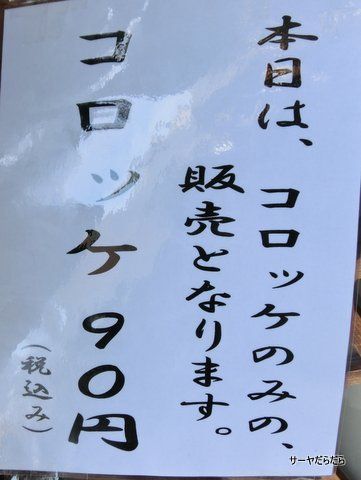 本日は、コロッケのみの、
販売となります。
コロッケ90円
(税込み)
サーヤだらだら